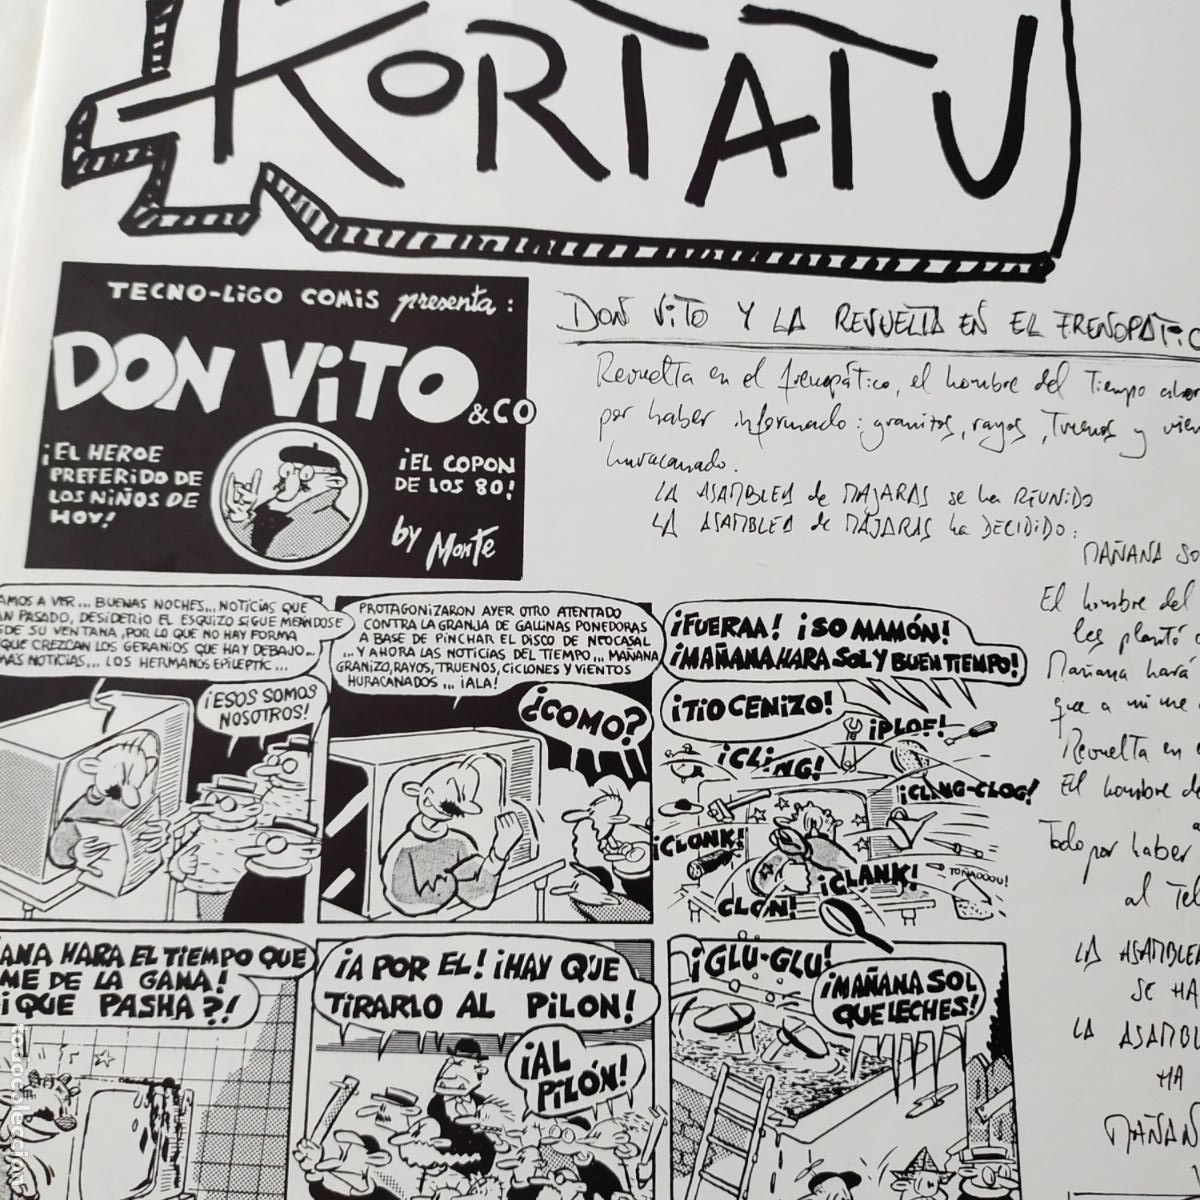 KORTATU
TECNO-LiGO COMiS presenta:
DON ViTO
& CO
¡EL HEROE
PREFERiDO DE
LOS NiÑOS DE
HOY!
¡EL COPON
DE LOS 80!
by Monte
DON ViTO Y LA REVUELTA EN EL FRENOPÁTICO
Revuelta en el frenopático, el hombre del Tiempo
por haber informado: granitos, rayos, Truenos y
huracanado.
LA ASAMBLEA de MAJARAS se ha REUNiDO
LA ASAMBLEA de MAJARAS ha DECiDiDO:
MAÑANA SO
El hombre del
les plantó
Mañana hará
que a mi me
Revuelta en
El hombre de
Todo por haber
al Tel
LA ASAMBLEA
SE HA
LA ASAMBL
HA
MAÑAN
AMOS A VER... BUENAS NOCHES... NOTICIAS QUE
AN PASADO, DESIDERIO EL ESQUIZO SIGUE MEANDOSE
SDE SU VENTANA, POR LO QUE NO HAY FORMA
QUE CREZCAN LOS GERANIOS QUE HAY DEBAJO...
MAS NOTICIAS... LOS HERMANOS EPILEPTIC...
¡ESOS SOMOS
NOSOTROS!
PROTAGONIZARON AYER OTRO ATENTADO
CONTRA LA GRANJA DE GALLINAS PONEDORAS
A BASE DE PINCHAR EL DISCO DE NEOCASAL
... Y AHORA LAS NOTICIAS DEL TIEMPO... MAÑANA
GRANIZO, RAYOS, TRUENOS, CICLONES Y VIENTOS
HURACANADOS... ¡ALA!
¿COMO?
¡FUERAA! ¡SO MAMÓN!
¡MAÑANA HARA SOL Y BUEN TIEMPO!
¡TIO CENIZO!
¡PLOF!
¡CLING!
¡CLING-CLOG!
¡CLONK!
¡CLANK!
TOÑAOOOU!
CLON!
ANA HARA EL TIEMPO QUE
ME DE LA GANA!
¡QUE PASHA?!
¡A POR EL! ¡HAY Q'UE
TIRARLO AL PILON!
¡AL
PILÓN!
¡GLU-GLU!
¡MAÑANA SOL
QUE LECHES!
todocoleccion